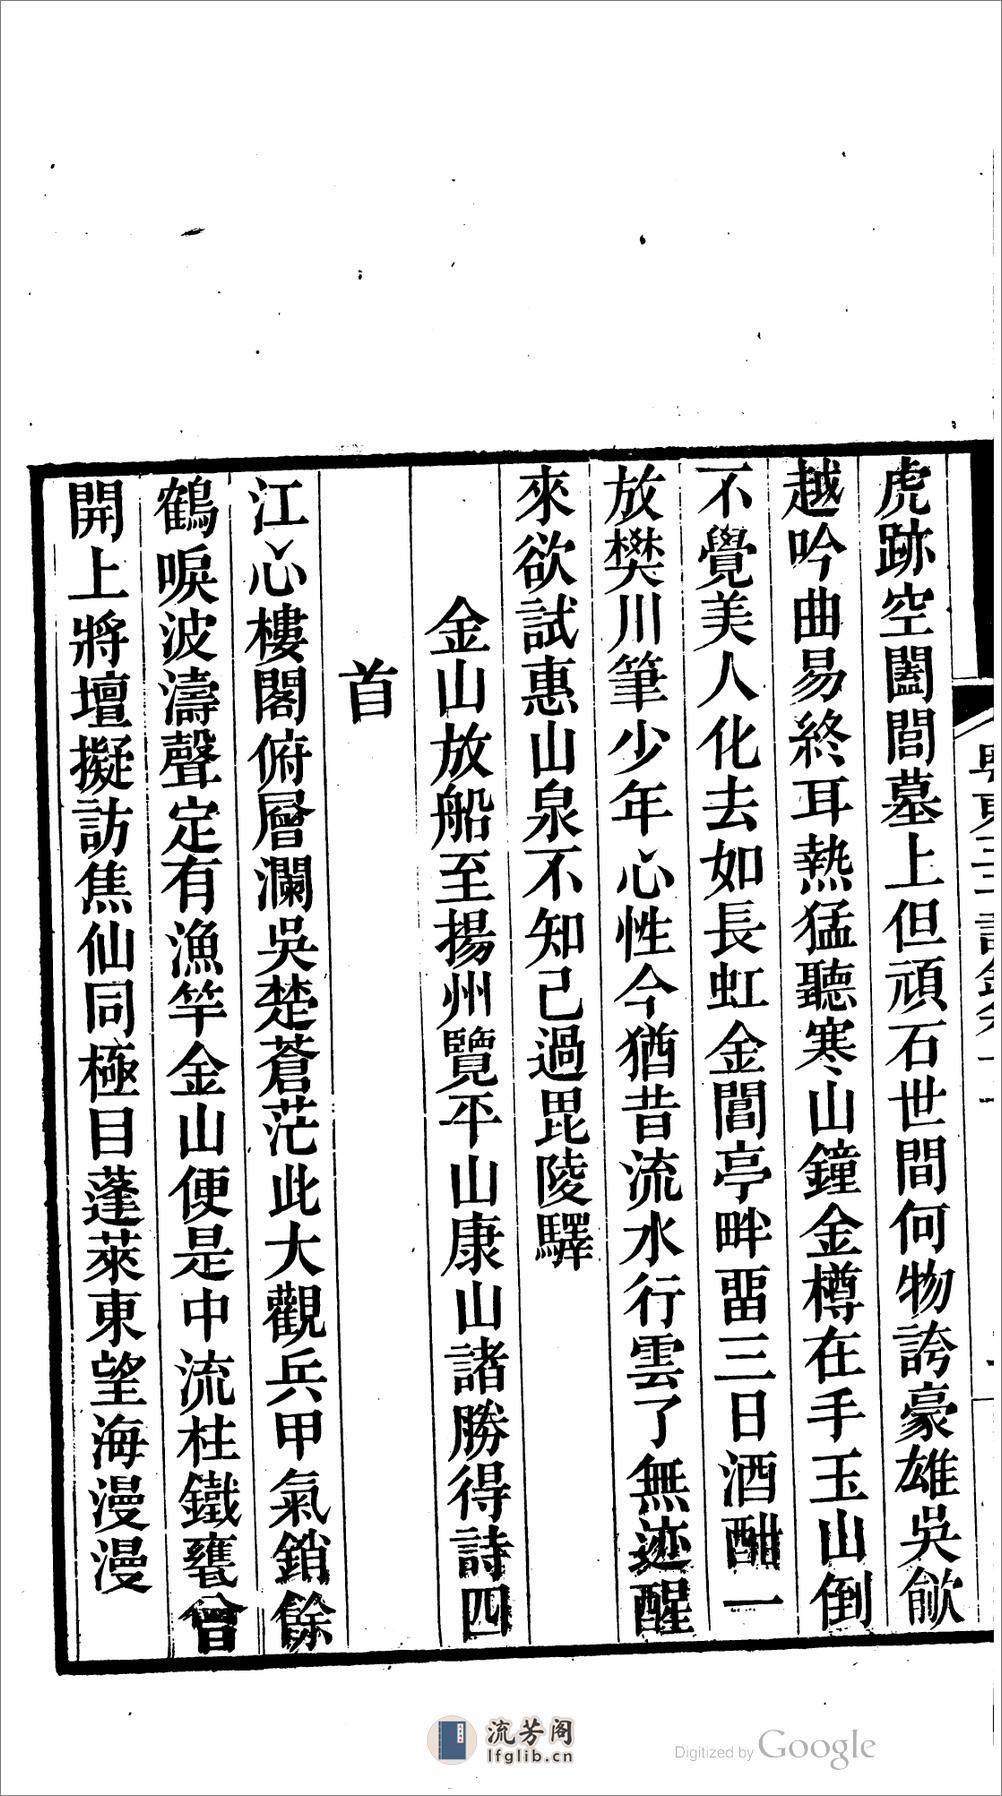 虎跡空闔閭墓上但頑石世間何物誇豪雄吳歈
越吟曲易終耳熱猛聽寒山鐘金樽在手玉山倒
不覺美人化去如長虹金閶亭畔畱三日酒酣一
放樊川筆少年心性今猶昔流水行雲了無迹醒
來欲試惠山泉不知已過毘陵驛
金山放船至揚州覽平山康山諸勝得詩四
首
江心樓閣俯層瀾吳楚蒼茫此大觀兵甲氣銷餘
鶴唳波濤聲定有漁竿金山便是中流柱鐵甕曾
開上將壇擬訪焦仙同極目蓬萊東望海漫漫
流芳阁
lfglib.cn
Digitized by Google